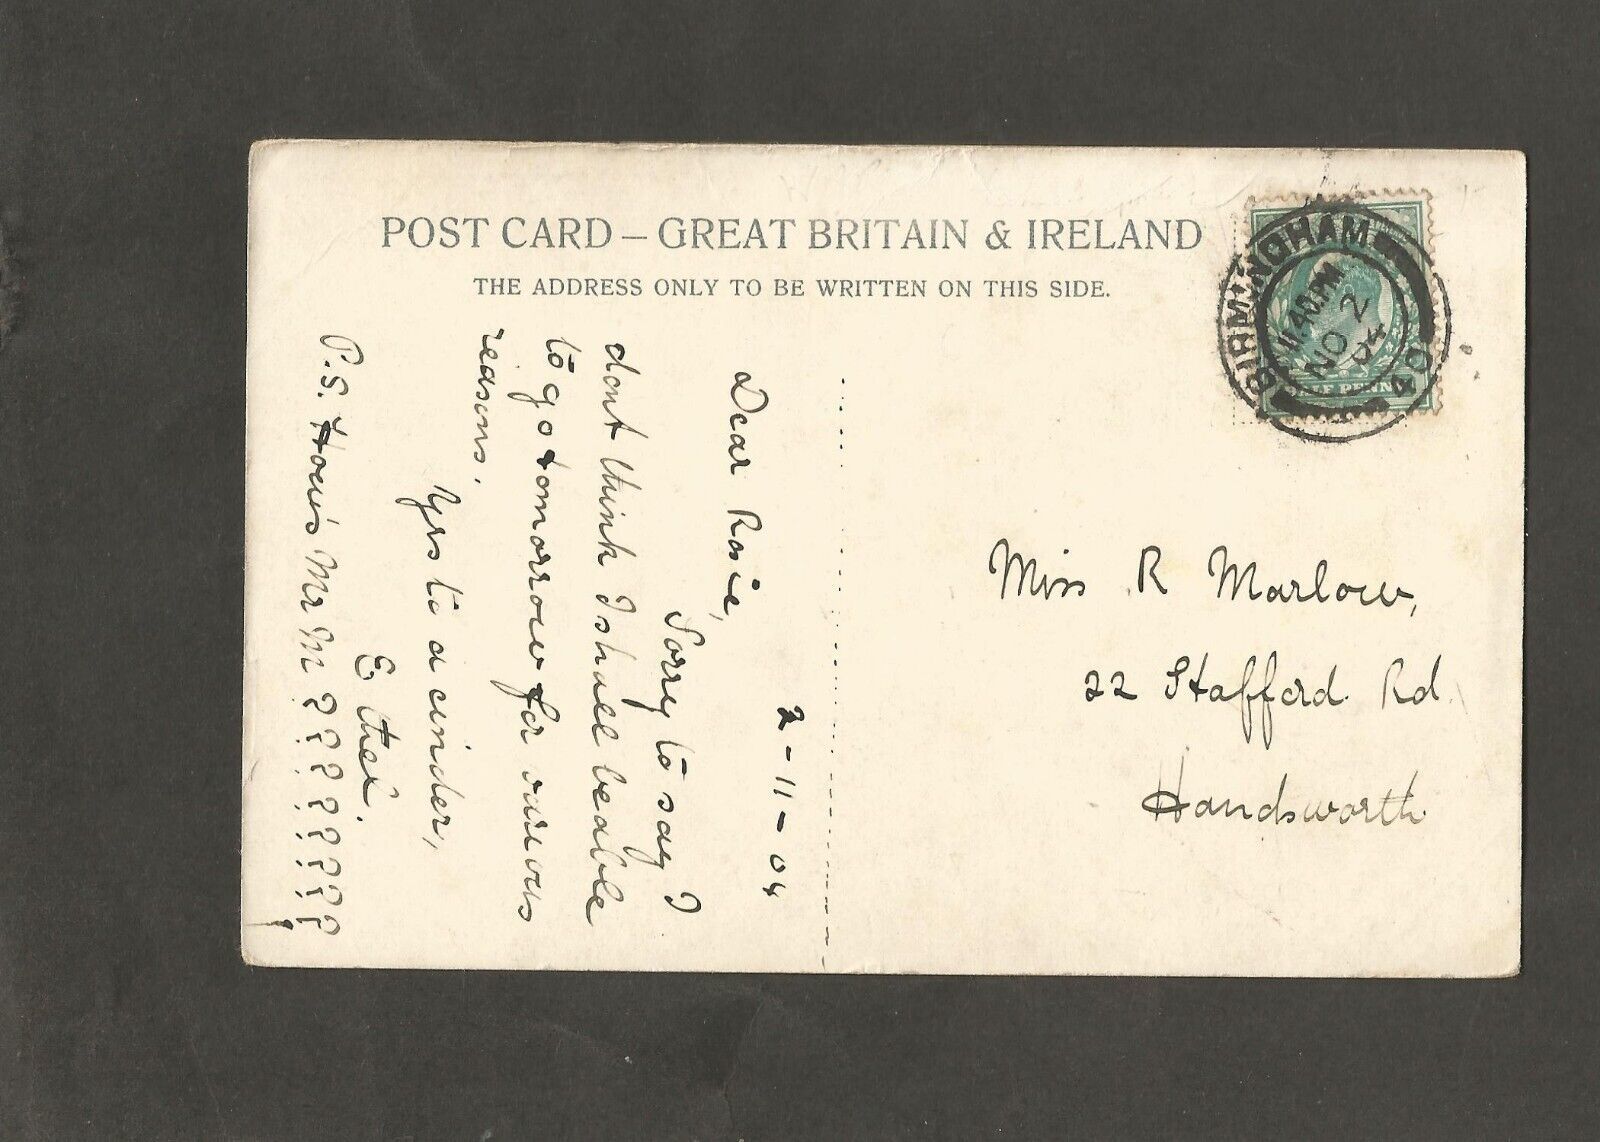 POST CARD – GREAT BRITAIN & IRELAND
THE ADDRESS ONLY TO BE WRITTEN ON THIS SIDE.
BIRMINGHAM
11.40.PM
NO 2
04
40
PENN
2-11-04
Dear Rosie,
Sorry to say I
dont think I shall be able
to go tomorrow for various
reasons.
Yrs to a cinder,
Ethel.
P.S. How's Mr M ????????
Miss R Marlow,
22 Stafford Rd
Handsworth